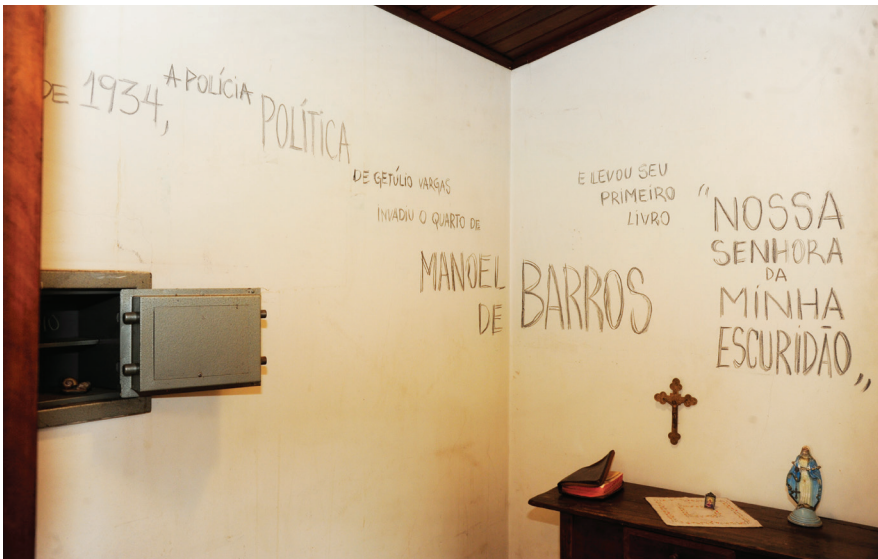 DE 1934,
A POLÍCIA
POLÍTICA
DE GETÚLIO VARGAS
INVADIU O QUARTO DE
MANOEL
DE BARROS
E LEVOU SEU
PRIMEIRO
LIVRO
"NOSSA
SENHORA
DA
MINHA
ESCURIDÃO"